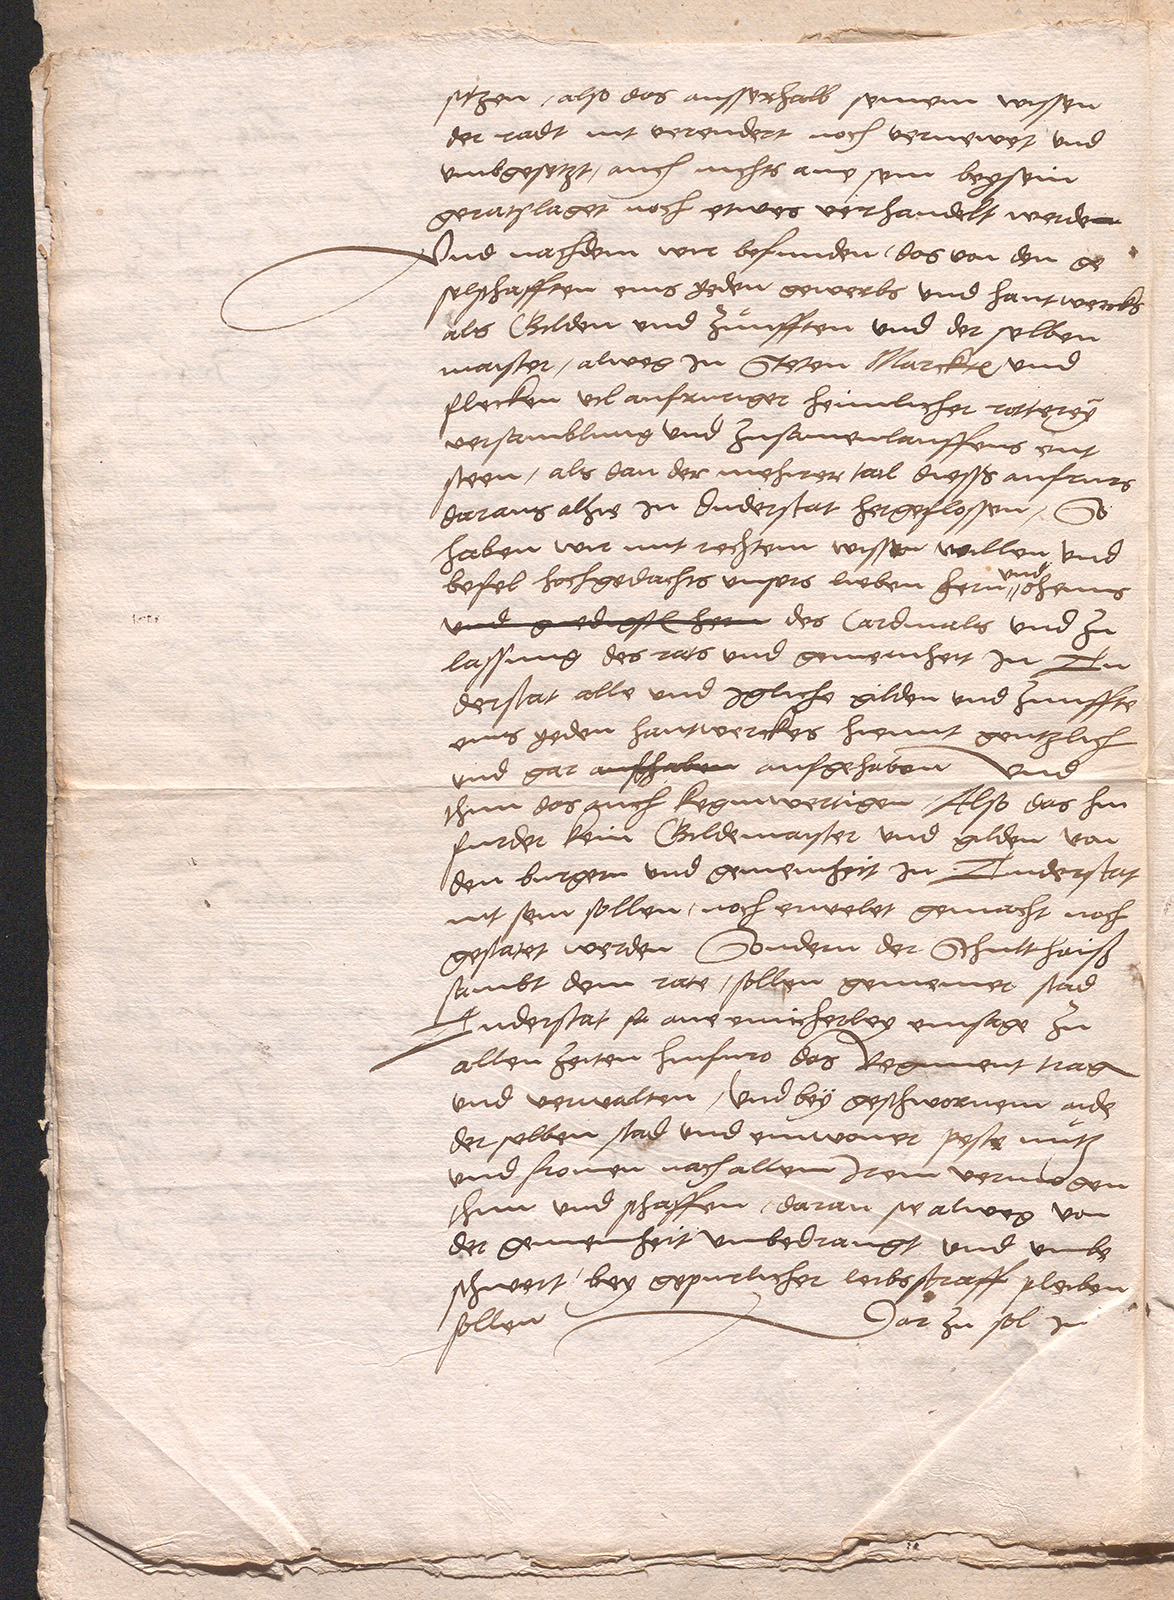 sitzen / also das ausserhalb seinem wissen
der radt nit verendert noch vernewet und
umbgesetzt / auch nichts ane sein beysein
geratslaget noch etwes verhandelt werden
Und nachdem wir befunden / das von den ge
selschafften eins yeden gewerbs und hantwercks
als Gilden und Zünfften und der selben
maister / alweg in Steten Marckten und
flecken vil aufruriger heimlicher rotterey
versamblung und zusamenlauffens ent
steen / als dan der mehrer tail diesss aufrurs
daraus alhie in Duderstat hergeflossen / So
haben wir mit rechtem wissen willen und
befel hochgedachts unsers lieben hern und ohems
und gnedigsten hern des Cardinals und zu
lassung des rats und gemeinheit in Du
derstat alle und ygliche gilden und zunffte
eins yeden hantwerckes hiemit gentzlich
und gar aufhaben aufgehaben und
thun das auch kegenwertigen / Also das hin
furder kein Gildemaister und gilden von
den burgern und gemeinheit in Duderstat
nit sein sollen / noch erwelet gemacht noch
gestatet werden Sondern der Schulthaiß
sambt dem rate / sollen gemeiner stad
Duderstat ane einicherley einsage zu
allen zeiten hinfuro das Regiment trag
und verwalten / Und bey geschwornem aide
der selben stad und einwoner peste nutz
und fromen nach allem Irem vermogen
thun und schaffen / daran sie alweg von
der gemeinheit unbedrangt und unbe
schwert / bey gepurlicher leibsstraff pleiben
sollen Dar zu sol in